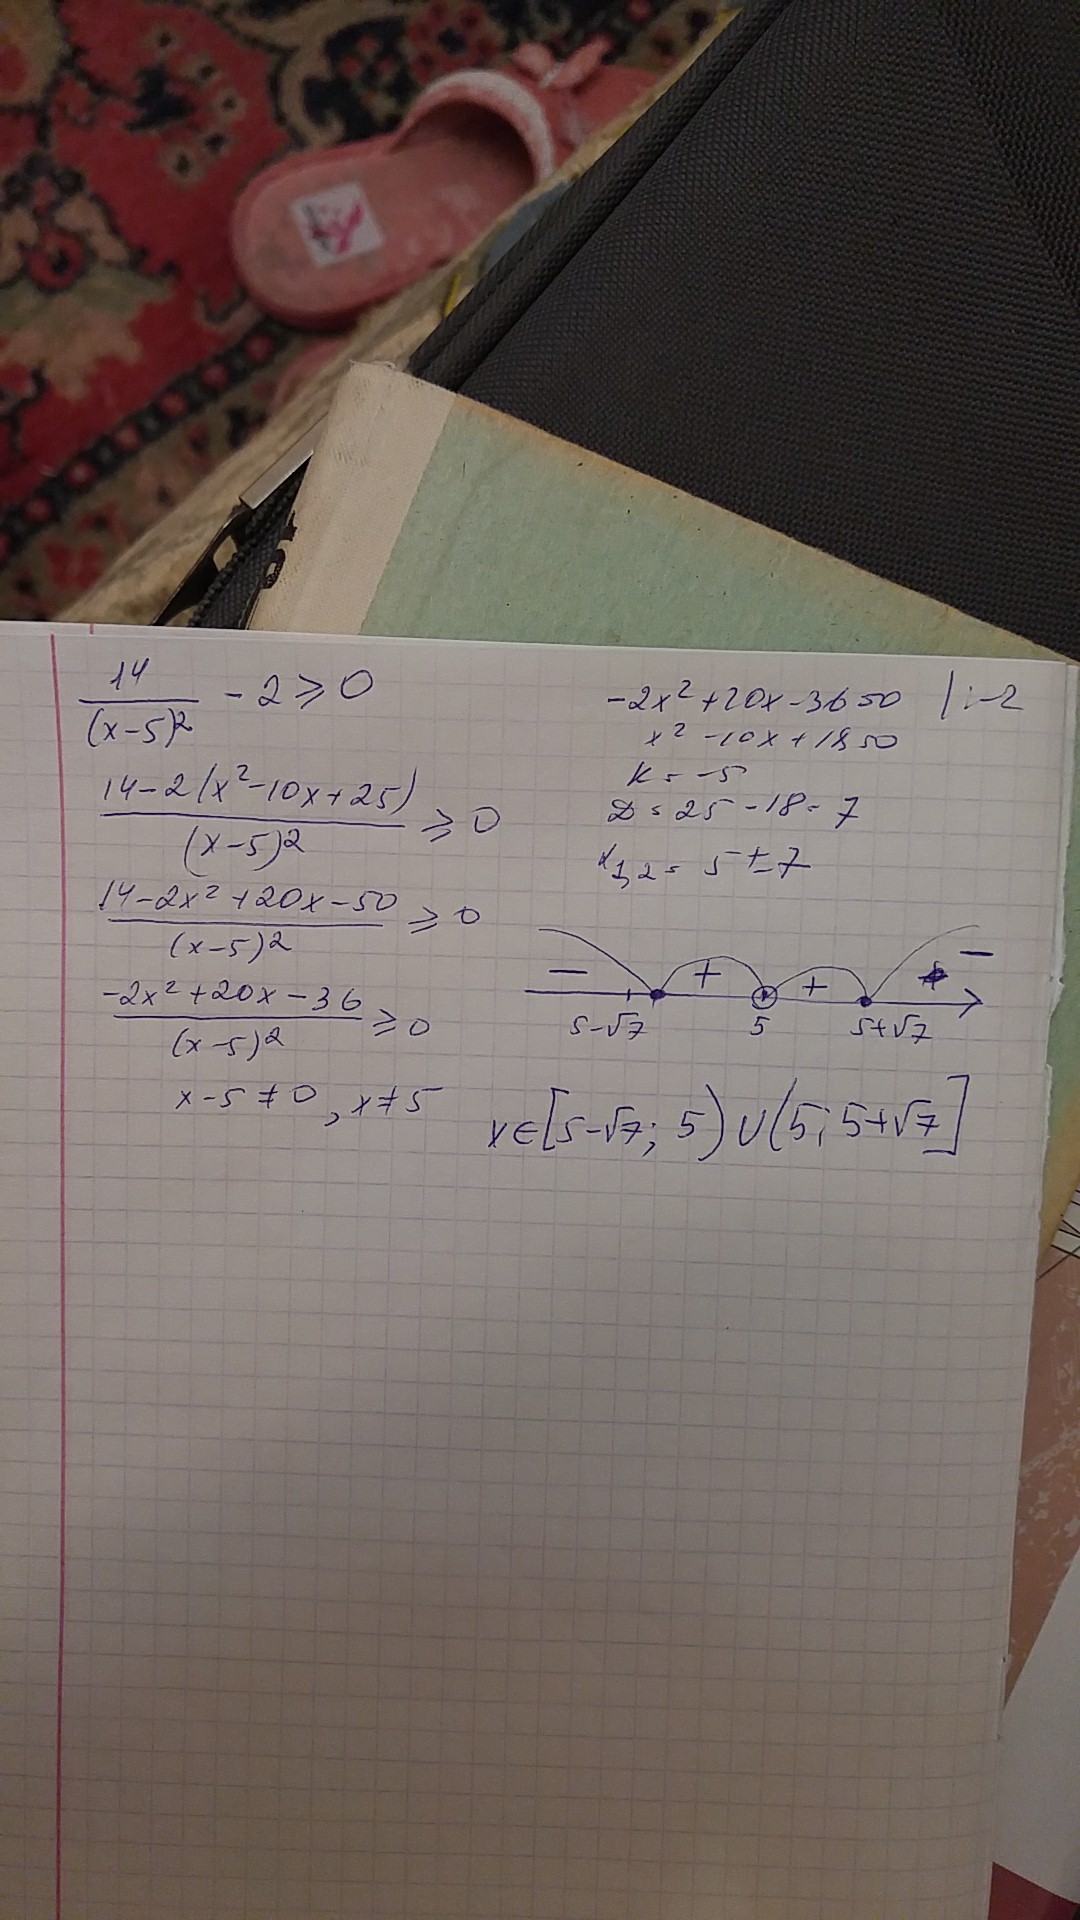 14/(x-5)² - 2 ≥ 0
(14-2(x²-10x+25))/(x-5)² ≥ 0
(14-2x²+20x-50)/(x-5)² ≥ 0
(-2x²+20x-36)/(x-5)² ≥ 0
x-5≠0, x≠5
-2x²+20x-36=0 |:-2
x²-10x+18=0
k=-5
D=25-18=7
x1,2=5±7
- + + -
5-√7 5 5+√7
x∈[5-√7; 5)∪(5; 5+√7]